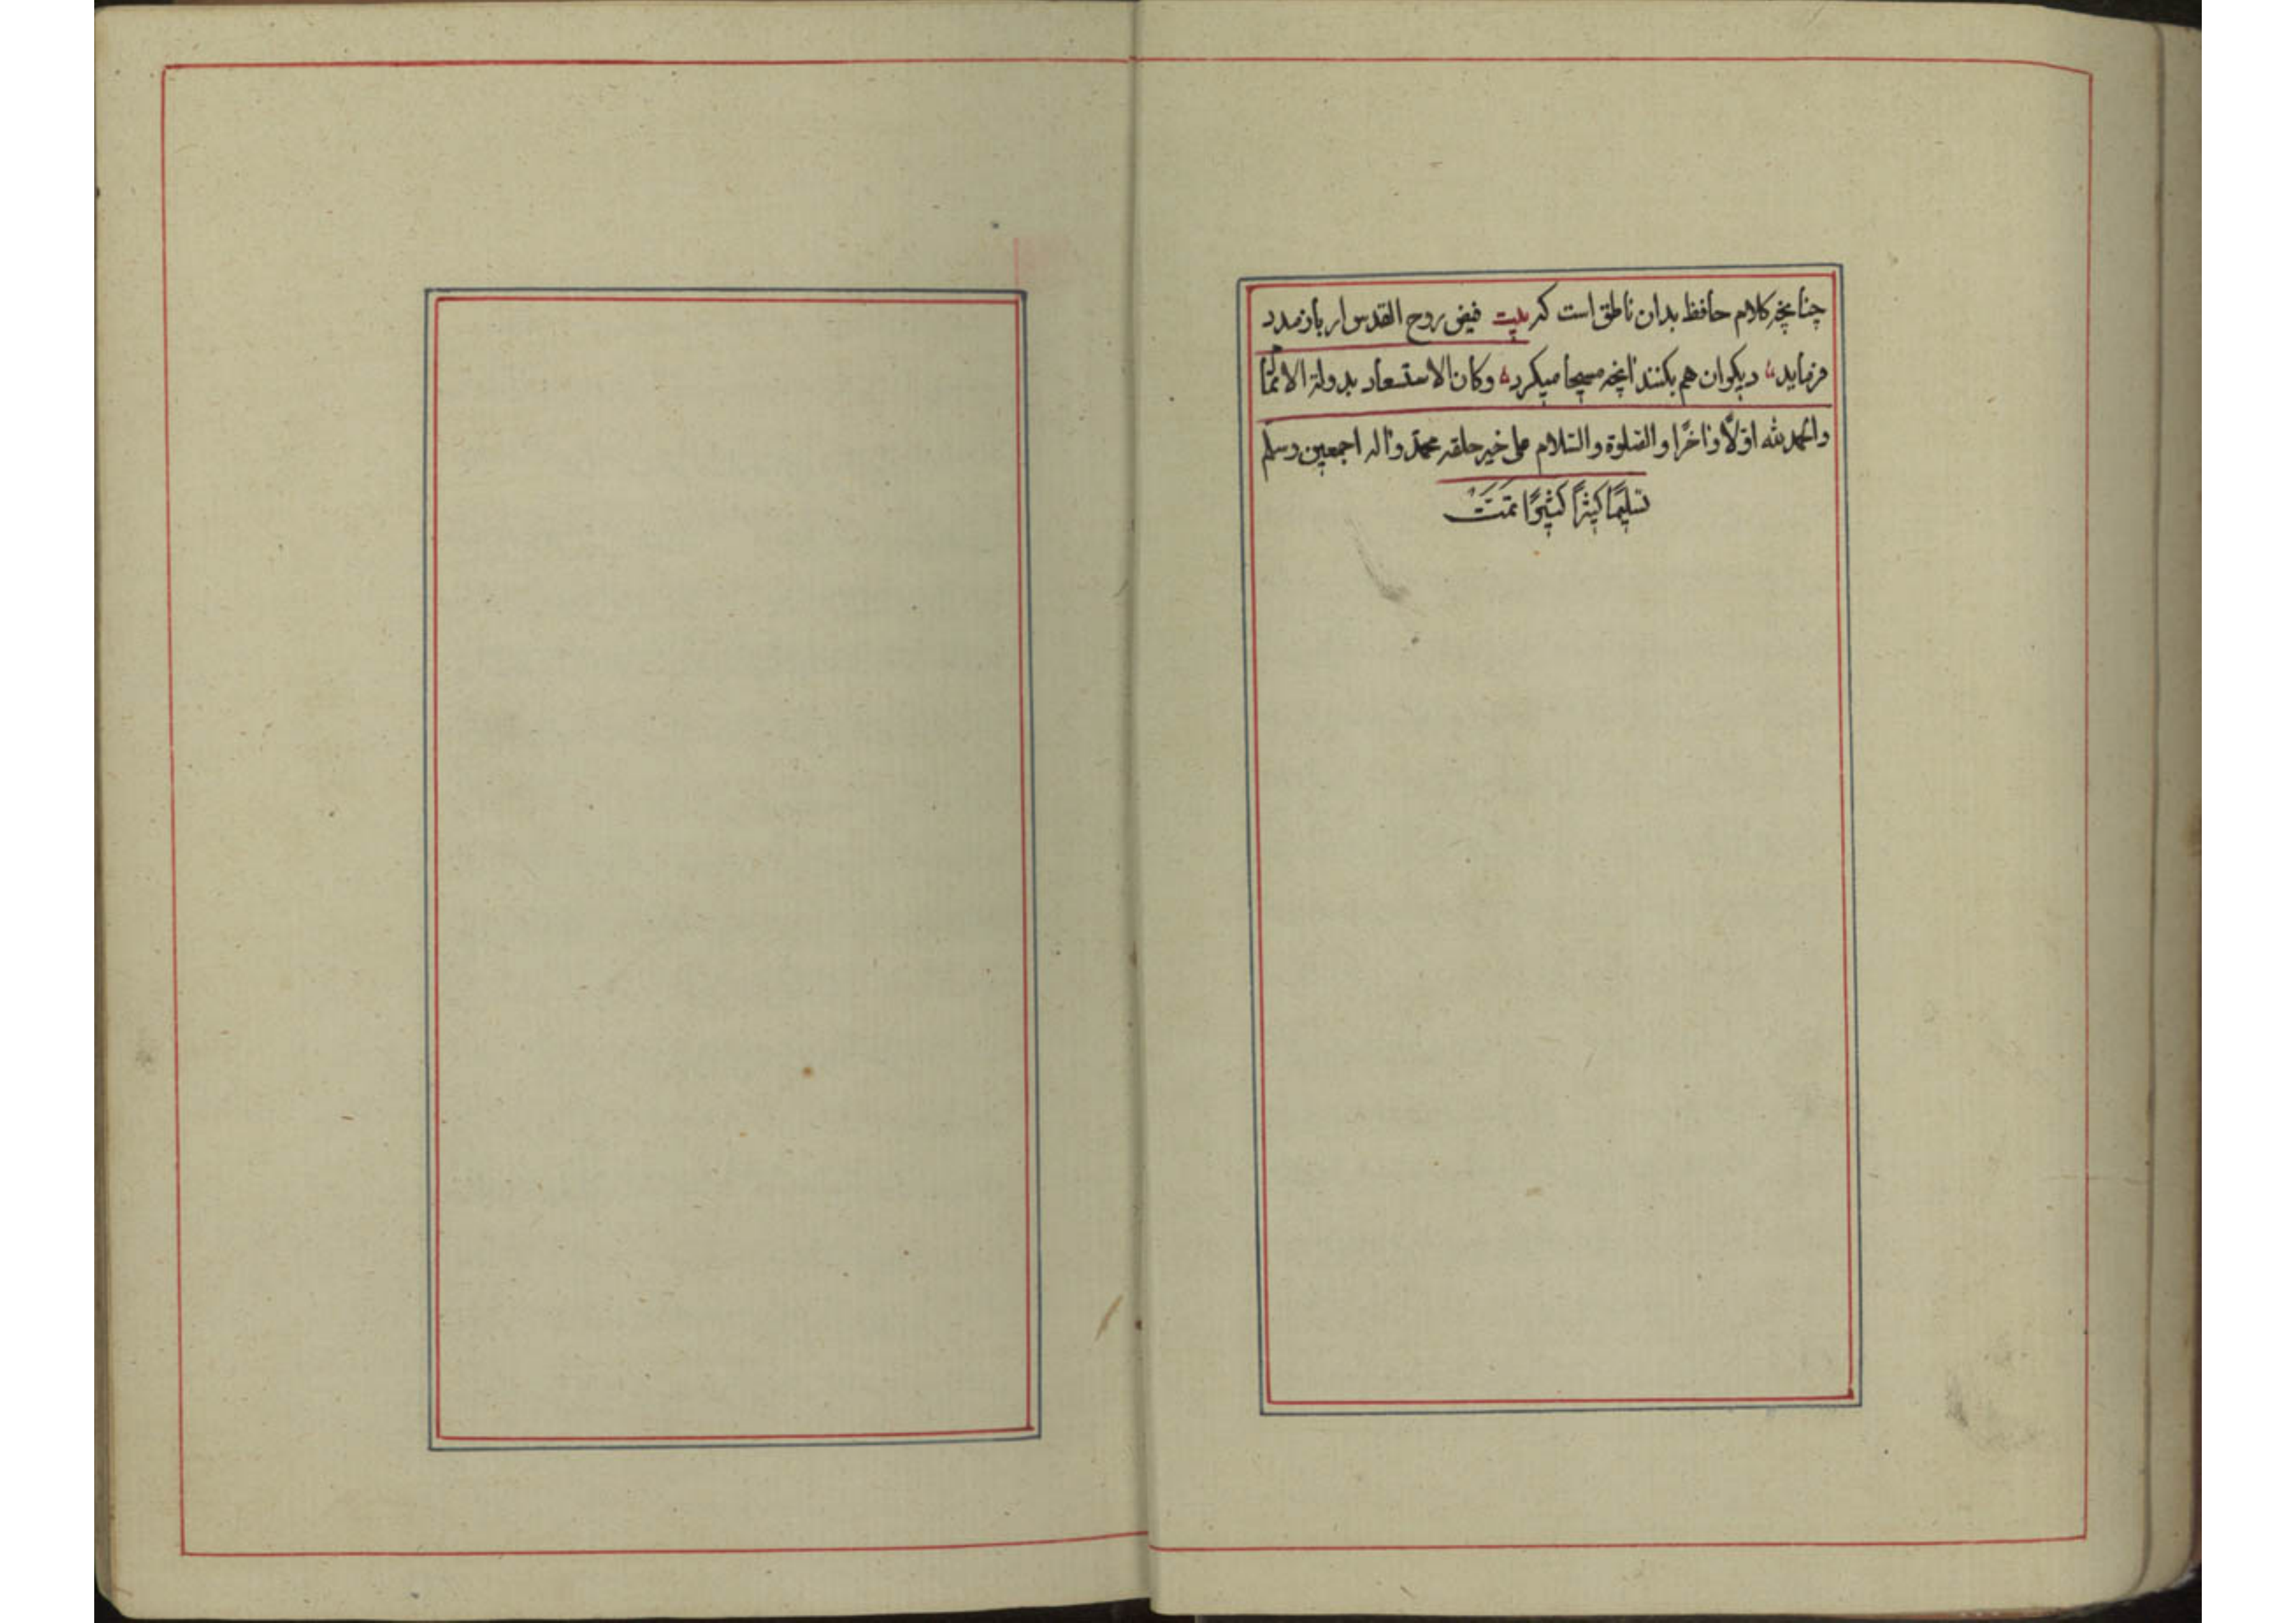 چنانچه کلام حافظ بدان ناطق است که بیت فیض روح القدس ار باز مدد
فرماید دیکران هم بکنند انچه مسیحا میکرد وکان الاستسعاد بدولة
والحمد لله اوّلاً واٰخرًا والصّلوة والسّلام علی خیر خلقه محمّد واٰله اجمعین وسلم
تسلیمًا کثیرًا کثیرًا تمّت